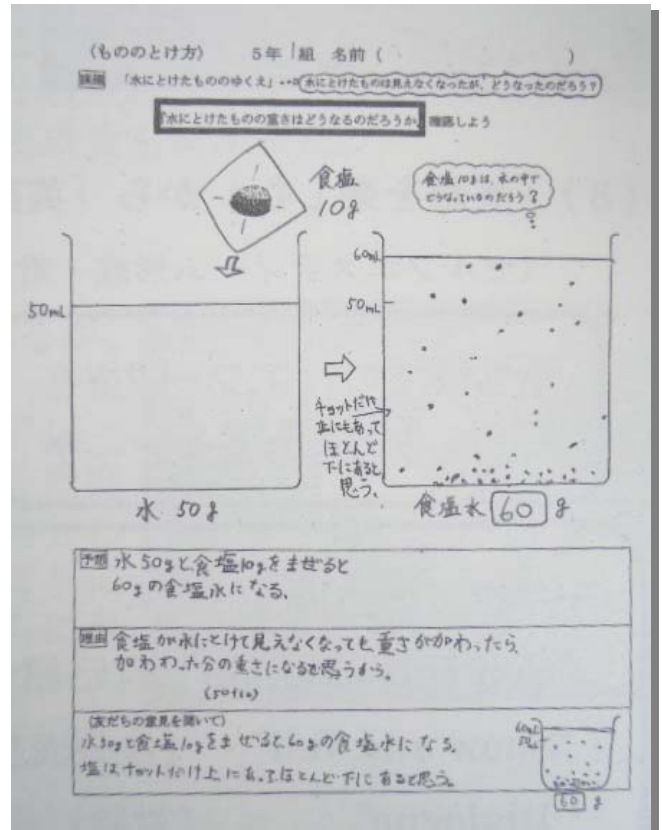 〈もののとけ方〉 5年 1組 名前 ( )
課題 「水にとけたもののゆくえ」…⇒ 水にとけたものは見えなくなったが、どうなったのだろう?
『水にとけたものの重さはどうなるのだろうか』確認しよう
食塩
10g
食塩10gは、水の中で
どうなっているのだろう?
60mL
50mL
50mL
チョットだけ
上にもあって
ほとんど
下にあると
思う。
水 50g
食塩水 60 g
予想 水50gと食塩10gをまぜると
60gの食塩水になる。
理由 食塩が水にとけて見えなくなっても重さがかわったら
加わわった分の重さになると思うから。
(50+10)
(友だちの意見を聞いて)
水50gと食塩10gをまぜると60gの食塩水になる。
塩はチョットだけ上にあってほとんど下にあると思う。
60mL
50mL
60 g